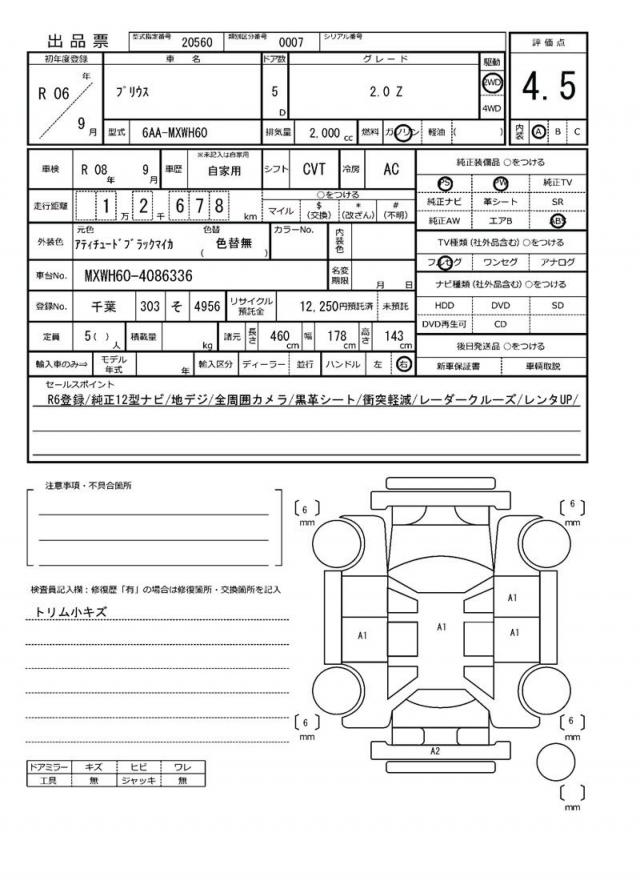 出品票 型式指定番号 20560 類別区分番号 0007 シリアル番号
初年度登録 車名 ドア数 グレード 駆動 評価点
R 06 年 9 月 プリウス 5 D 2.0 Z 2WD 4WD 4.5
型式 6AA-MXWH60 排気量 2,000 cc 燃料 ガソリン 軽油 ( ) 内装 A B C
車検 R 08 年 9 月 車歴 ※未記入は自家用 自家用 シフト CVT 冷房 AC
走行距離 1 万 2 千 6 7 8 km ○をつける マイル $ (交換) * (改ざん) # (不明)
外装色 元色 アティチュードブラックマイカ 色替 ( 色替無 ) カラーNo. 内装色
車台No. MXWH60-4086336 名変期限 月 日
登録No. 千葉 303 そ 4956 リサイクル預託金 12,250円預託済 未預託
定員 5 ( ) 人 積載量 kg 諸元 長さ 460 cm 幅 178 cm 高さ 143 cm
輸入車のみ⇒ モデル年式 年 輸入区分 ディーラー 並行 ハンドル 左 右
純正装備品 ○をつける
PS PW 純正TV
純正ナビ 革シート SR
純正AW エアB ABS
TV種類 (社外品含む) ○をつける
フルセグ ワンセグ アナログ
ナビ種類 (社外品含む) ○をつける
HDD DVD SD
DVD再生可 CD
後日発送品 ○をつける
新車保証書 車輌取説
セールスポイント
R6登録/純正12型ナビ/地デジ/全周囲カメラ/黒革シート/衝突軽減/レーダークルーズ/レンタUP/
注意事項・不具合箇所
検査員記入欄:修復歴「有」の場合は修復箇所・交換箇所を記入
トリム小キズ
ドアミラー キズ ヒビ ワレ
工具 無 ジャッキ 無
6 mm
6 mm
A1
A1 A1 A1
6 mm
6 mm
A2
mm